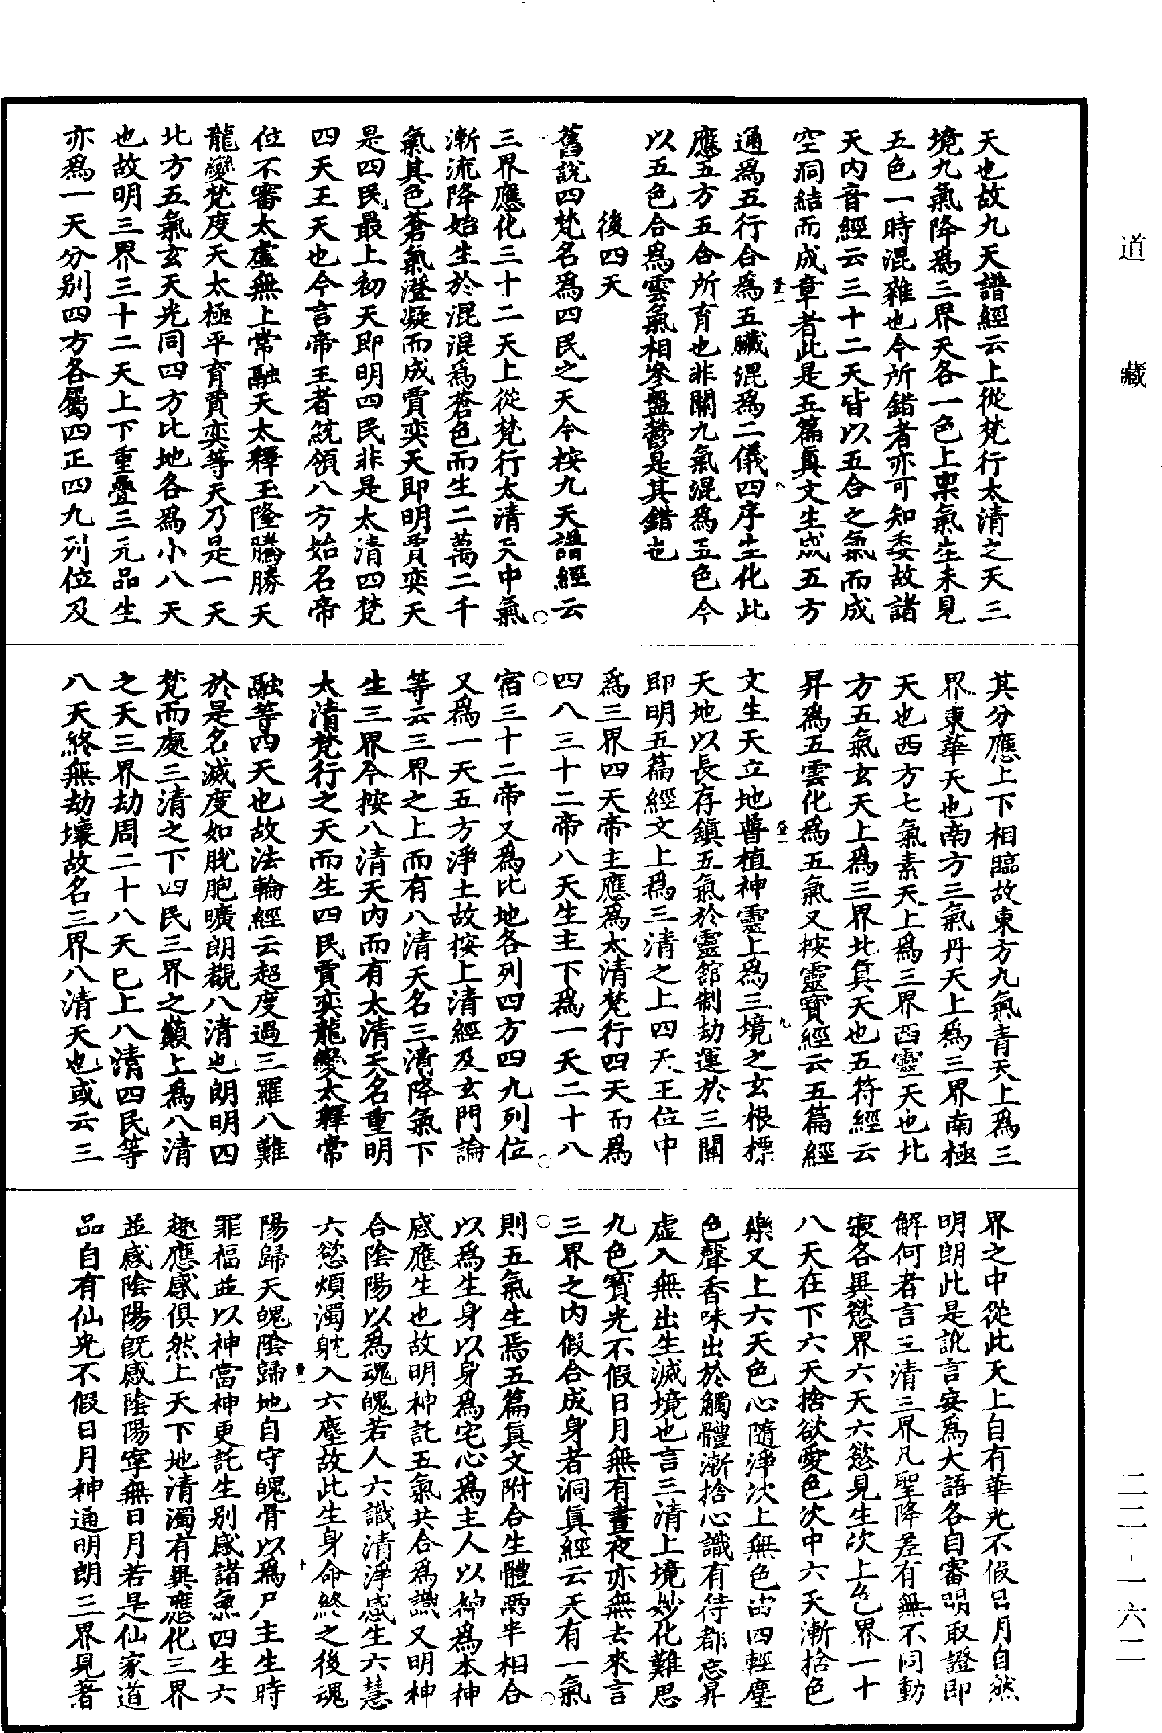 道藏
二二·一六二
天也故九天譜經云上從梵行太清之天三
境九氣降為三界天各一色上稟氣生未見
五色一時混雜也今所錯者亦可知委故諸
天內音經云三十二天皆以五合之氣而成
空洞結而成章者此是五篇真文生成五方
通為五行合為五臟混為二儀四序生化此
應五方五合所育也非關九氣混為五色今
以五色合為雲氣相參盤鬱是其錯也
後四天
舊說四梵名為四民之天今按九天譜經云
三界應化三十二天上從梵行太清天中氣
漸流降始生於混混為蒼色而生二萬二千
氣其色蒼氣澄凝而成賈奕天即明賈奕天
是四民最上初天即明四民非是太清四梵
四天王天也今言帝王者統領八方始名帝
位不審太虛無上常融天太釋玉隆騰勝天
龍變梵度天太極平育賈奕等天乃是一天
北方五氣玄天光同四方比地各為小八天
也故明三界三十二天上下重疊三元品生
亦為一天分別四方各屬四正四九列位及
其分應上下相臨故東方九氣青天上為三
界東華天也南方三氣丹天上為三界南極
天也西方七氣素天上為三界西靈天也北
方五氣玄天上為三界北真天也五符經云
昇為五雲化為五氣又按靈寶經云五篇經
文生天立地普植神靈上為三境之玄根標
天地以長存鎮五氣於靈館制劫運於三關
即明五篇經文上為三清之上四天王位中
為三界四天帝主應為太清梵行四天而為
四八三十二帝八天生主下為一天二十八
宿三十二帝又為比地各列四方四九列位
又為一天五方淨土故按上清經及玄門論
等云三界之上而有八清天名三清降氣下
生三界今按八清天內而有太清天名重明
太清梵行之天而生四民賈奕龍變太釋常
融等四天也故法輪經云超度過三羅八難
於是名滅度如脫胞曠朗觀八清也朗明四
梵而處三清之下四民三界之巔上為八清
之天三界劫周二十八天已上八清四民等
八天終無劫壞故名三界八清天也或云三
界之中從此天上自有華光不假日月自然
明朗此是訛言妄為大語各自審明取證即
解何者言三清三界凡聖降差有無不同動
寂各異慾界六天六慾見生次上色界一十
八天在下六天捨欲愛色次中六天漸捨色
樂又上六天色心隨淨次上無色古四輕塵
色聲香味出於觸體漸捨心識有待都忘昇
虛入無出生滅境也言三清上境妙化難思
九色寶光不假日月無有晝夜亦無去來言
三界之內假合成身者洞真經云天有一氣
則五氣生焉五篇真文附合生體兩半相合
以為生身以身為宅心為主人以神為本神
感應生也故明神託五氣共合為識又明神
合陰陽以為魂魄若人六識清淨感生六慧
六慾煩濁耽入六塵故此生身命終之後魂
陽歸天魄陰歸地自守魄骨以為尸主生時
罪福並以神當神更託生別感諸氣四生六
趣應感俱然上天下地清濁有異應化三界
並感陰陽既感陰陽寧無日月若是仙家道
品自有仙光不假日月神通明朗三界見著